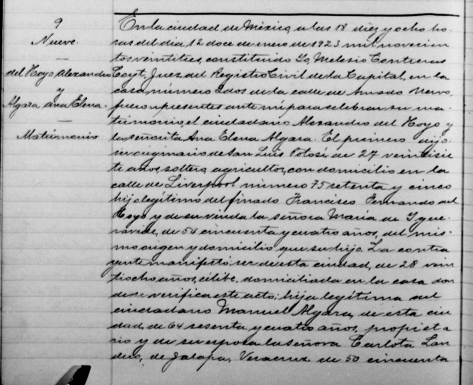 9
Nueve
del Hoyo Alexandro
y
Algara Ana Elena.
Matrimonio
En la ciudad de México, a las 18 diez y ocho ho
ras del día 12 doce de enero de 1923 mil novecien
tos veintitres, constituido Yo, Melesio Contreras
Coyt, Juez del Registro Civil de la Capital, en la
casa número 2 dos de la calle de Amado Nervo,
fueron presentes ante mi para celebrar su ma
trimonio, el ciudadano Alexandro del Hoyo y
la señorita Ana Elena Algara. El primero dijo
ser originario de San Luis Potosí, de 27 veintisie
te años, soltero, agricultor, con domicilio en la
calle de Liverpool número 75 setenta y cinco
hijo legítimo del finado Francisco Fernando del
Hoyo y de su viuda la señora María de
de 54 cincuenta y cuatro años, del mis
mo origen y domicilio que su hijo. La contra
yente manifestó ser de ésta ciudad, de 28 vein
tiocho años, célibe, domiciliada en la casa don
de se verifica este acto; hija legítima del
ciudadano Manuel Algara, de esta ciu
dad, de 64 sesenta y cuatro años, propieta
rio y de su esposa la señora Carlota Lan
dero, de Jalapa, Veracruz de 50 cincuenta